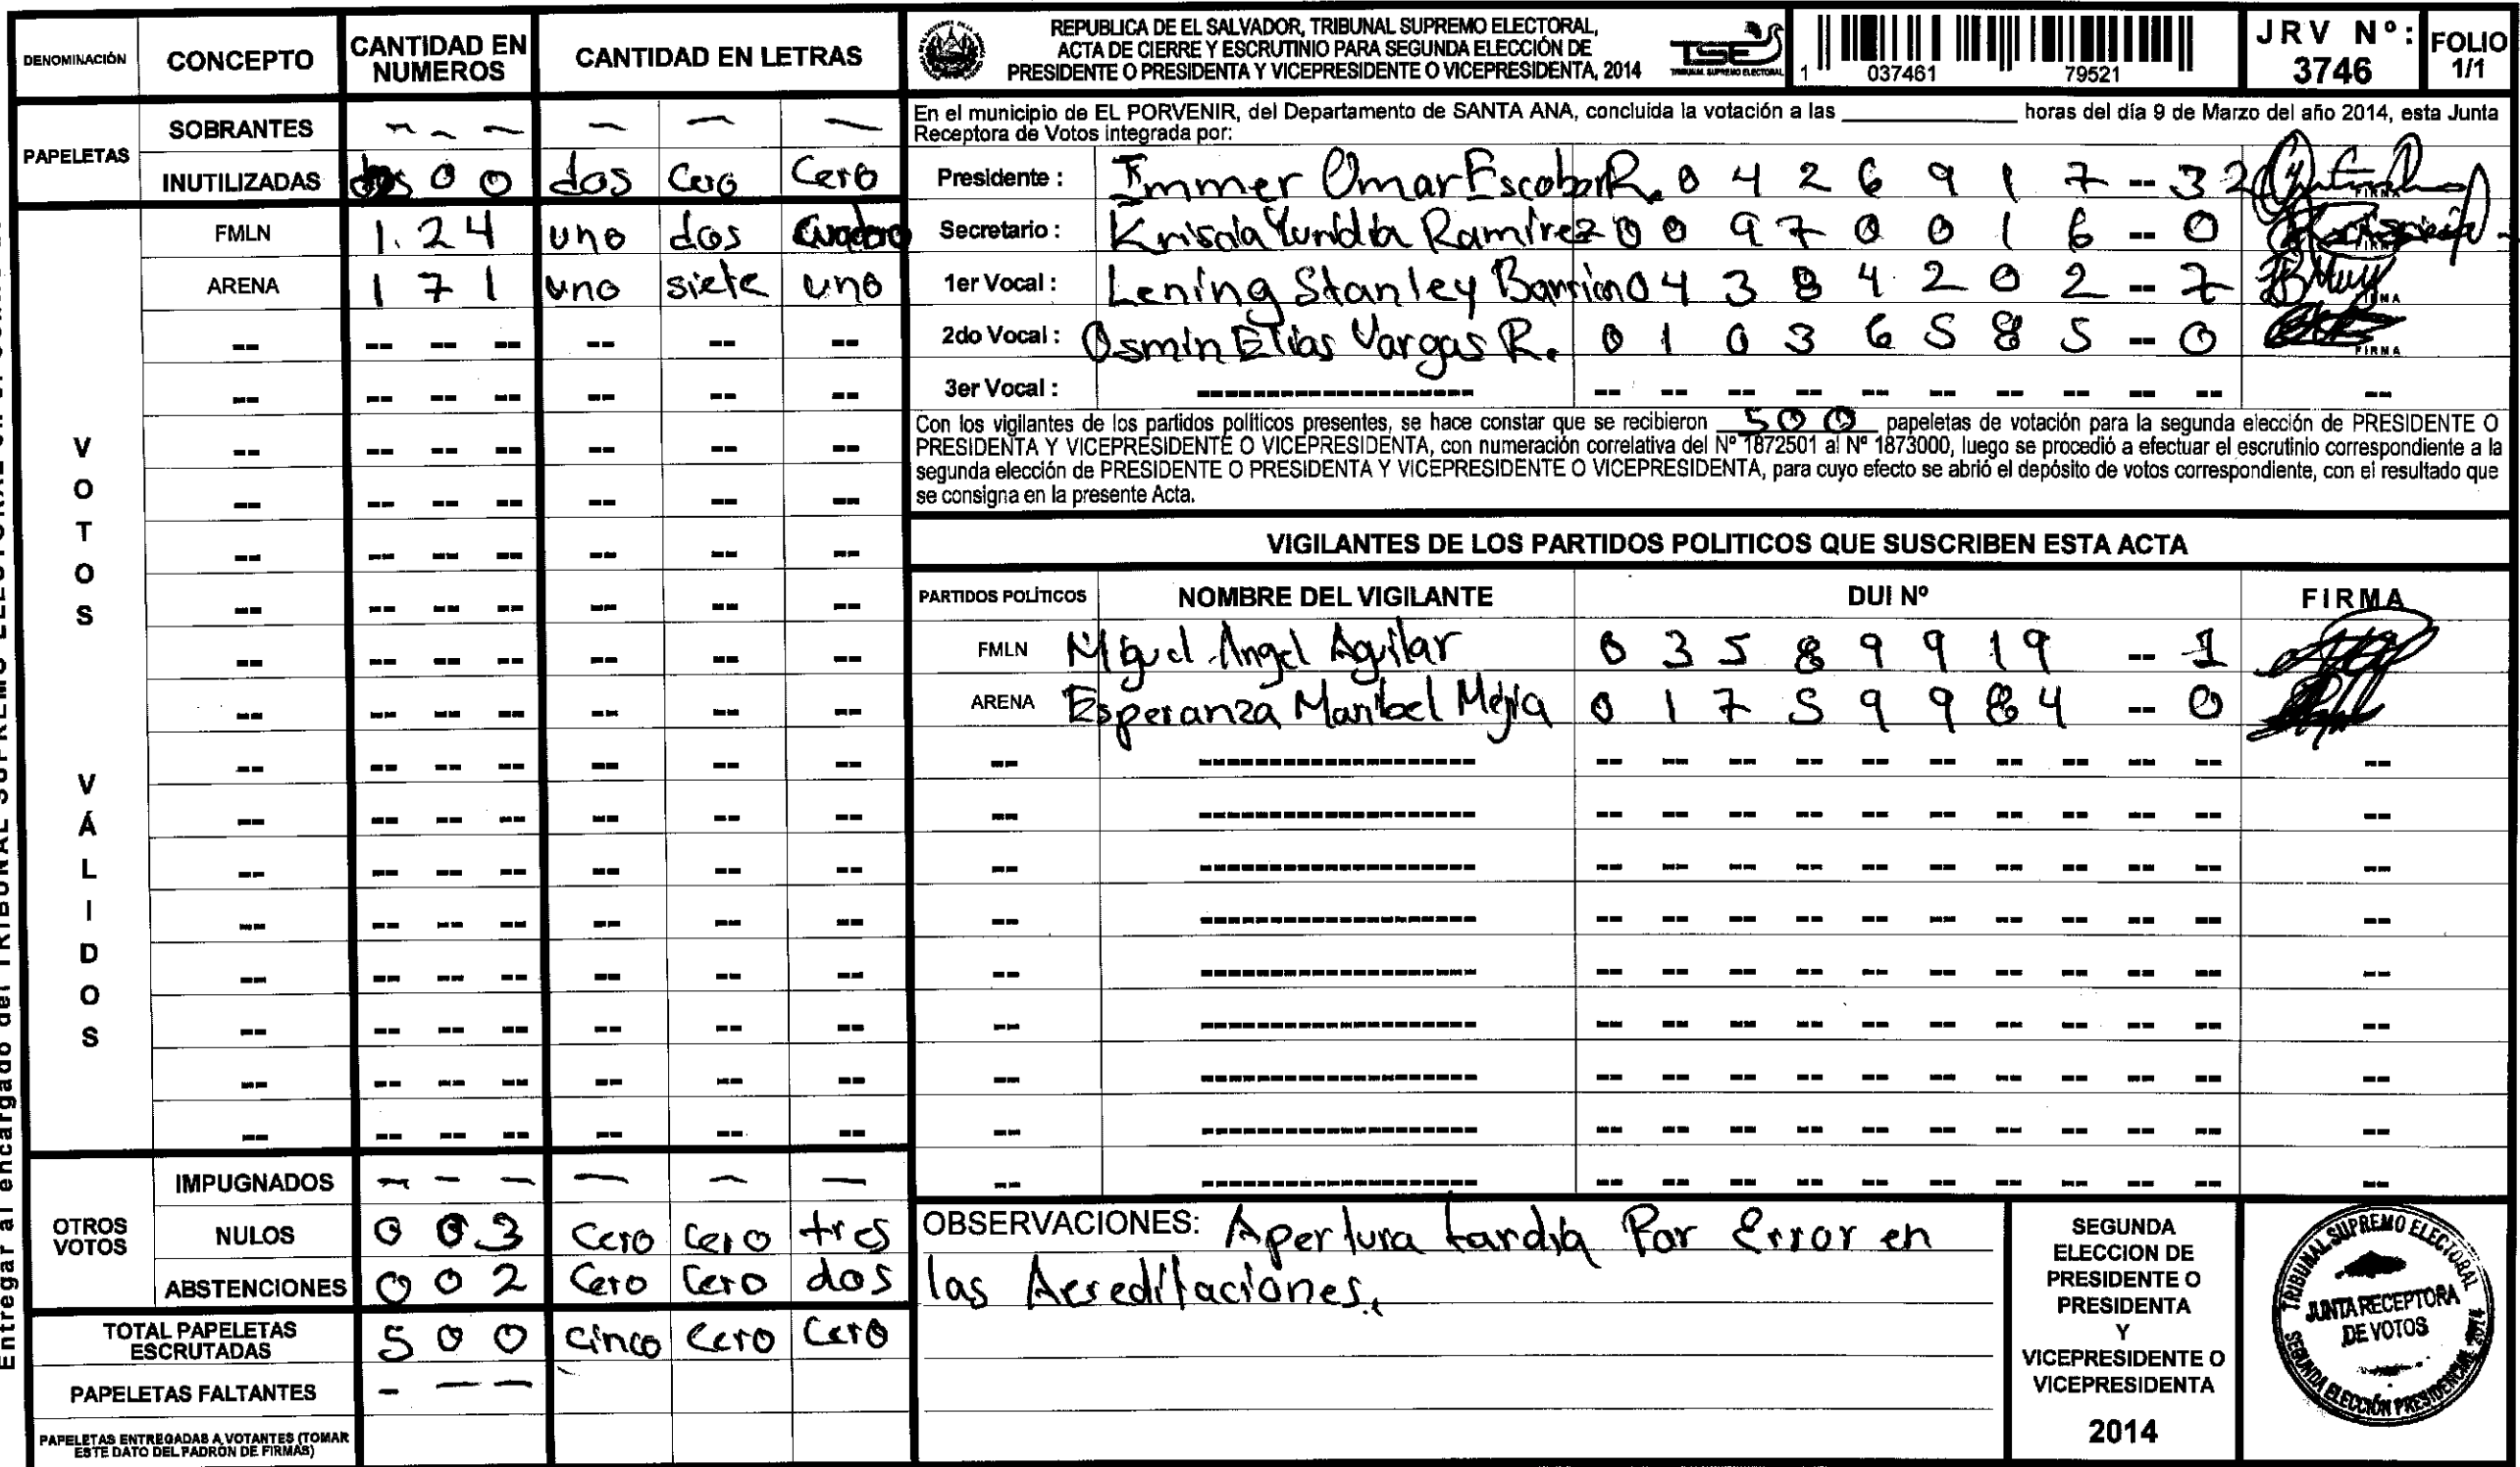 DENOMINACIÓN CONCEPTO CANTIDAD EN NUMEROS CANTIDAD EN LETRAS
PAPELETAS
SOBRANTES - - - - - -
INUTILIZADAS dos 0 0 dos Cero Cero
VOTOS VÁLIDOS
FMLN 1.24 uno dos cuatro
ARENA 171 uno siete uno
OTROS VOTOS
IMPUGNADOS - - - - - -
NULOS 0 0 3 Cero Cero tres
ABSTENCIONES 0 0 2 Cero Cero dos
TOTAL PAPELETAS ESCRUTADAS 5 0 0 Cinco Cero Cero
PAPELETAS FALTANTES - - -
PAPELETAS ENTREGADAS A VOTANTES (TOMAR ESTE DATO DEL PADRÓN DE FIRMAS)
REPUBLICA DE EL SALVADOR, TRIBUNAL SUPREMO ELECTORAL,
ACTA DE CIERRE Y ESCRUTINIO PARA SEGUNDA ELECCIÓN DE
PRESIDENTE O PRESIDENTA Y VICEPRESIDENTE O VICEPRESIDENTA, 2014
TSE
TRIBUNAL SUPREMO ELECTORAL
1 037461 79521
JRV Nº: 3746
FOLIO 1/1
En el municipio de EL PORVENIR, del Departamento de SANTA ANA, concluida la votación a las ____ horas del día 9 de Marzo del año 2014, esta Junta
Receptora de Votos integrada por:
Presidente : Immer Omar Escobar R. 0 4 2 6 9 1 7 -- 32
Secretario : Krisola Yuridia Ramírez 0 0 9 7 0 0 1 6 -- 0
1er Vocal : Lening Stanley Barrion 0 4 3 8 4 2 0 2 -- 7
2do Vocal : Osmin Elias Vargas R. 0 1 0 3 6 5 8 5 -- 0
FIRMA
3er Vocal : -- -- -- -- -- -- -- -- -- -- --
Con los vigilantes de los partidos políticos presentes, se hace constar que se recibieron 500 papeletas de votación para la segunda elección de PRESIDENTE O
PRESIDENTA Y VICEPRESIDENTE O VICEPRESIDENTA, con numeración correlativa del Nº 1872501 al Nº 1873000, luego se procedió a efectuar el escrutinio correspondiente a la
segunda elección de PRESIDENTE O PRESIDENTA Y VICEPRESIDENTE O VICEPRESIDENTA, para cuyo efecto se abrió el depósito de votos correspondiente, con el resultado que
se consigna en la presente Acta.
VIGILANTES DE LOS PARTIDOS POLITICOS QUE SUSCRIBEN ESTA ACTA
PARTIDOS POLÍTICOS NOMBRE DEL VIGILANTE DUI Nº FIRMA
FMLN Miguel Angel Aguilar 0 3 5 8 9 9 1 9 -- 1
ARENA Esperanza Maribel Mejia 0 1 7 5 9 9 8 4 -- 0
OBSERVACIONES: Apertura tardía Por Error en
las Acreditaciones.
SEGUNDA
ELECCION DE
PRESIDENTE O
PRESIDENTA
Y
VICEPRESIDENTE O
VICEPRESIDENTA
2014
TRIBUNAL SUPREMO ELECTORAL
JUNTA RECEPTORA
DE VOTOS
SEGUNDA ELECCIÓN PRESIDENCIAL 2014
Entregar al encargado del TRIBUNAL SUPREMO ELECTORAL